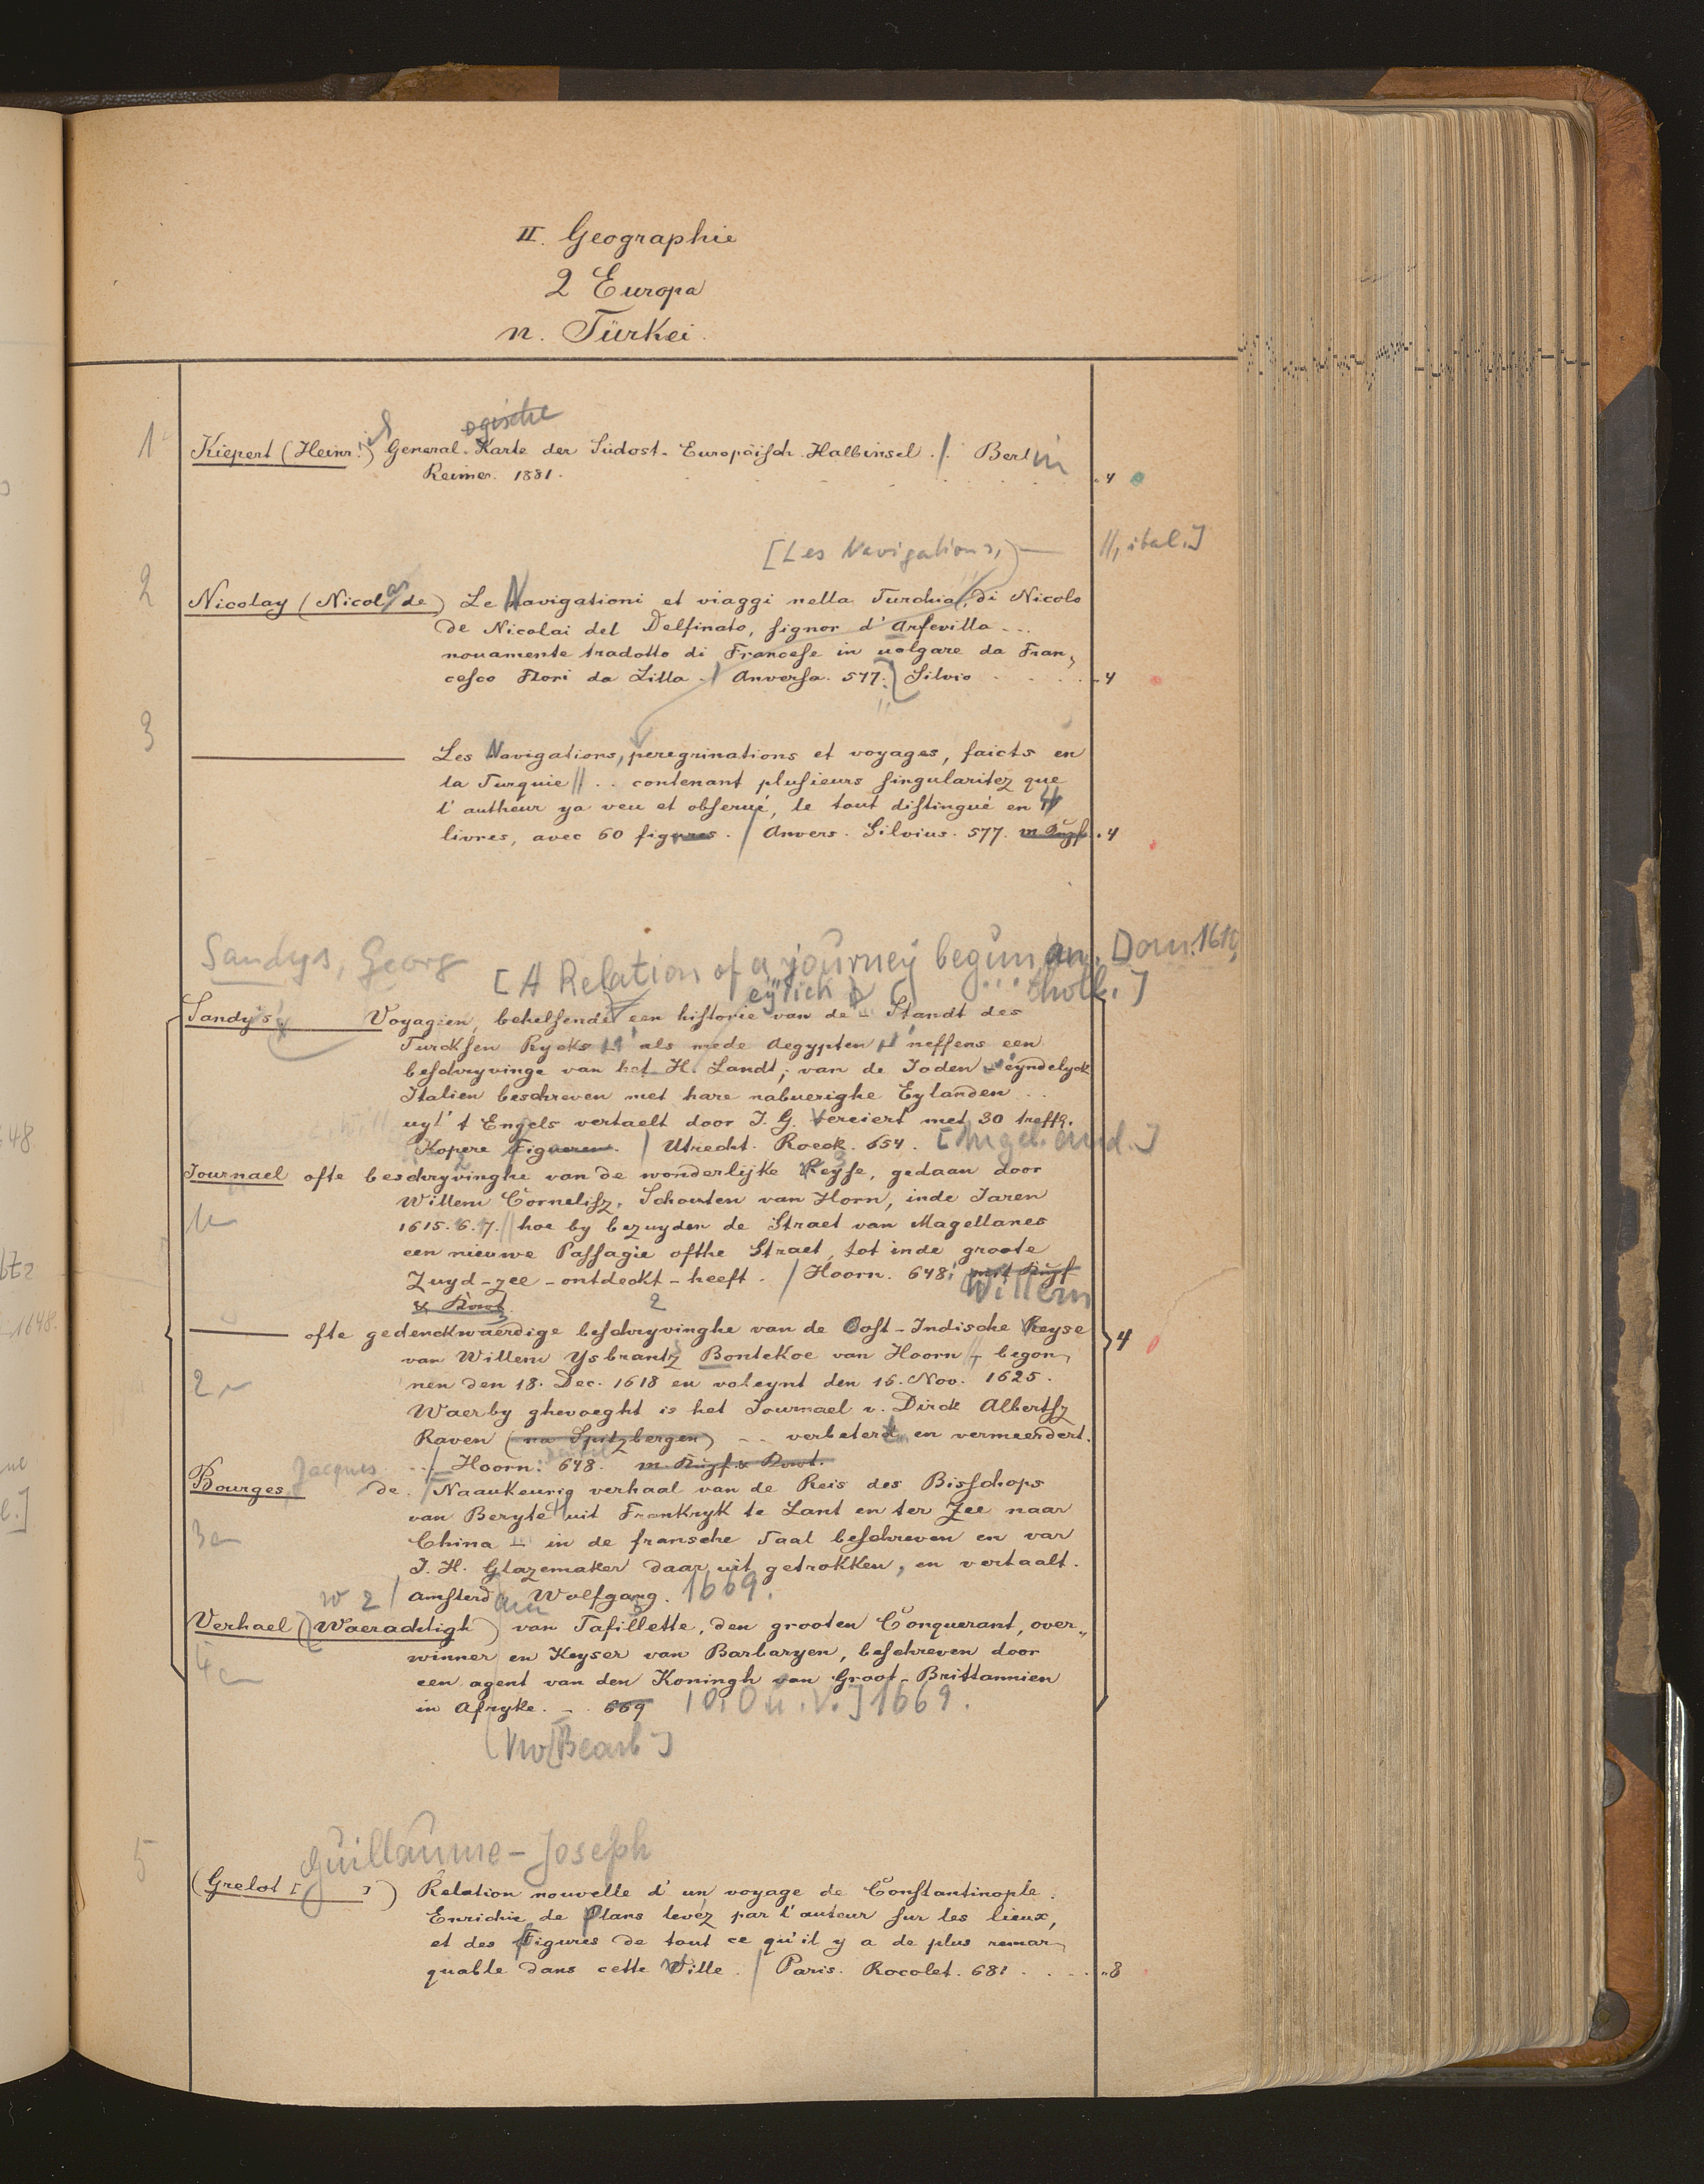 II. Geographie
2 Europa
n. Türkei.
ogische
1 Kiepert (Heinr.) General-Karte der Südost-Europäisch. Halbinsel. /. Berlin
Reimer. 1881. 4
[Les Navigations, //, ital.]
2 Nicolay (Nicolas de) Le Navigationi et viaggi nella Turchia, di Nicolo
de Nicolai del Delfinato, signor d'Arfevilla...
novamente tradotto di Francese in volgare da Fran,
cesco Flori da Lilla. / Anversa. 577. Silvio 4
3 Les Navigations, peregrinations et voyages, faicts en
la Turquie // .. contenant plusieurs singularitez que
l'autheur ya veu et obserué, le tout distingué en 4
livres, avec 60 figures. / Anvers. Silvius. 577. 4
Sandys, Georg [A Relation of a journey begun an. Dom. 1610,
... holl.]
Sandys Voyagien, behelsende een historie van de Standt des
Turcksen Rycks als mede Aegypten neffens een
beschryvinge van het H. Landt, van de Joden eyndelyck
Italien beschreven met hare nabuerighe Eylanden ..
uyt 't Engels vertaelt door J. G. Verciert met 30 treffl.
Kopere Figueren. / Utrecht. Roeck. 654.
Journael ofte beschryvinghe van de wonderlijke Reyse, gedaan door
Willem Cornelisz. Schouten van Horn, inde Jaren
1615. 6. 7. // hoe by bezuyden de Straet van Magellanes
een nieuwe Passagie ofthe Straet, tot inde groote
Zuyd-zee-ontdeckt-heeft. / Hoorn. 648.
Willem
ofte gedenckwaerdige beschryvinghe van de Oost-Indische Reyse
van Willem Ysbrantz Bontekoe van Hoorn, begon,
nen den 18. Dec. 1618 en voleynt den 16. Nov. 1625.
Waerby ghevoeght is het Journael v. Dirck Albertsz
Raven (na Spitzbergen) -- verbetert en vermeerdert.
/ Hoorn: 648.
Bourges, Jacques de. Naaukeurig verhaal van de Reis des Bisschops
van Beryte uit Frankryk te Lant en ter Zee naar
China in de fransche Taal beschreven en var
J. H. Glazemaker daar uit getrokken, en vertaalt.
/ Amsterdam Wolfgang. 1669.
Verhael (Waerachtigh) van Tafillette, den grooten Conquerant, over,,
winner en Keyser van Barbaryen, beschreven door
een agent van den Koningh van Groot-Brittannien
in Afryke. 669 [o. O u. V.] 1669.
Guillaume-Joseph
5 (Grelot [ ]) Relation nouvelle d'un voyage de Constantinople.
Enrichie de Plans levez par l'auteur sur les lieux,
et des Figures de tout ce qu'il y a de plus remar,
quable dans cette Ville. / Paris. Rocolet. 681. 8